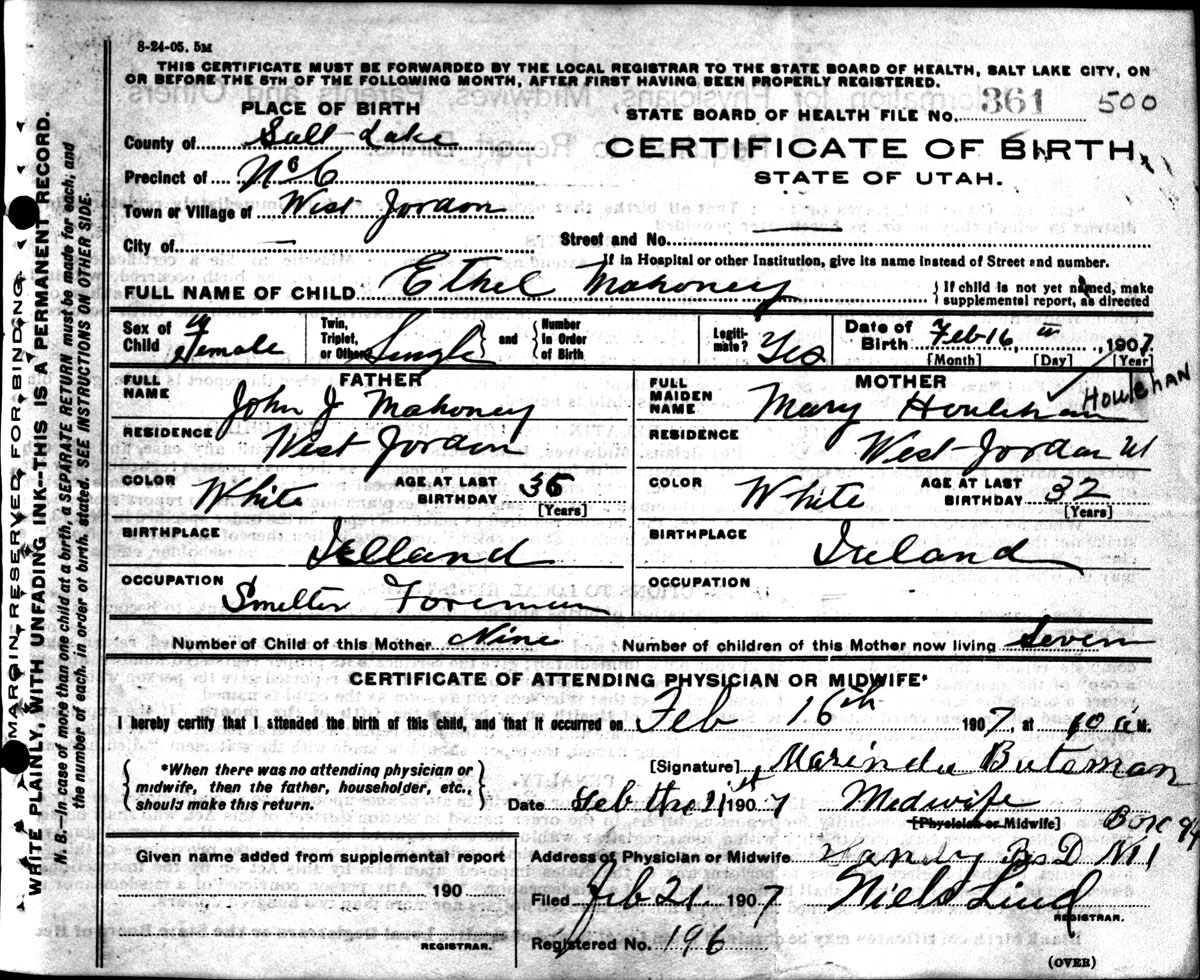 8-24-05. 5M
THIS CERTIFICATE MUST BE FORWARDED BY THE LOCAL REGISTRAR TO THE STATE BOARD OF HEALTH, SALT LAKE CITY, ON
OR BEFORE THE 5TH OF THE FOLLOWING MONTH, AFTER FIRST HAVING BEEN PROPERLY REGISTERED.
PLACE OF BIRTH
STATE BOARD OF HEALTH FILE No. 361 500
County of Salt Lake
CERTIFICATE OF BIRTH
Precinct of No 6
STATE OF UTAH.
Town or Village of West Jordon
City of —
Street and No.
If in Hospital or other Institution, give its name instead of Street and number.
FULL NAME OF CHILD Ethel Mahoney
If child is not yet named, make
supplemental report, as directed
Sex of Child Female
Twin, Triplet, or Other Single and Number in Order of Birth
Legitimate? Yes
Date of Birth Feb 16, 1907
[Month] [Day] [Year]
FATHER
MOTHER
FULL NAME John J Mahoney
FULL MAIDEN NAME Mary Houlehan HOULEHAN
RESIDENCE West Jordon
RESIDENCE West Jordan Ut
COLOR White AGE AT LAST BIRTHDAY 36 [Years]
COLOR White AGE AT LAST BIRTHDAY 32 [Years]
BIRTHPLACE Ielland
BIRTHPLACE Ireland
OCCUPATION Smelter Foreman
OCCUPATION =
Number of Child of this Mother Nine
Number of children of this Mother now living Seven
CERTIFICATE OF ATTENDING PHYSICIAN OR MIDWIFE*
I hereby certify that I attended the birth of this child, and that it occurred on Feb 16th 1907, at 10 a M.
*When there was no attending physician or
midwife, then the father, householder, etc.,
should make this return.
[Signature] Marinda Bateman
Date Feb the 21st 1907 Medwife
[Physician or Midwife]
Given name added from supplemental report
190
REGISTRAR.
Address of Physician or Midwife Sandy No 1 Box
Filed Feb 21. 1907 Niels Lind
REGISTRAR.
Registered No. 196
(OVER)
MARGIN RESERVED FOR BINDING
WRITE PLAINLY, WITH UNFADING INK--THIS IS A PERMANENT RECORD.
N. B.--In case of more than one child at a birth, a SEPARATE RETURN must be made for each, and
the number of each, in order of birth, stated. SEE INSTRUCTIONS ON OTHER SIDE.